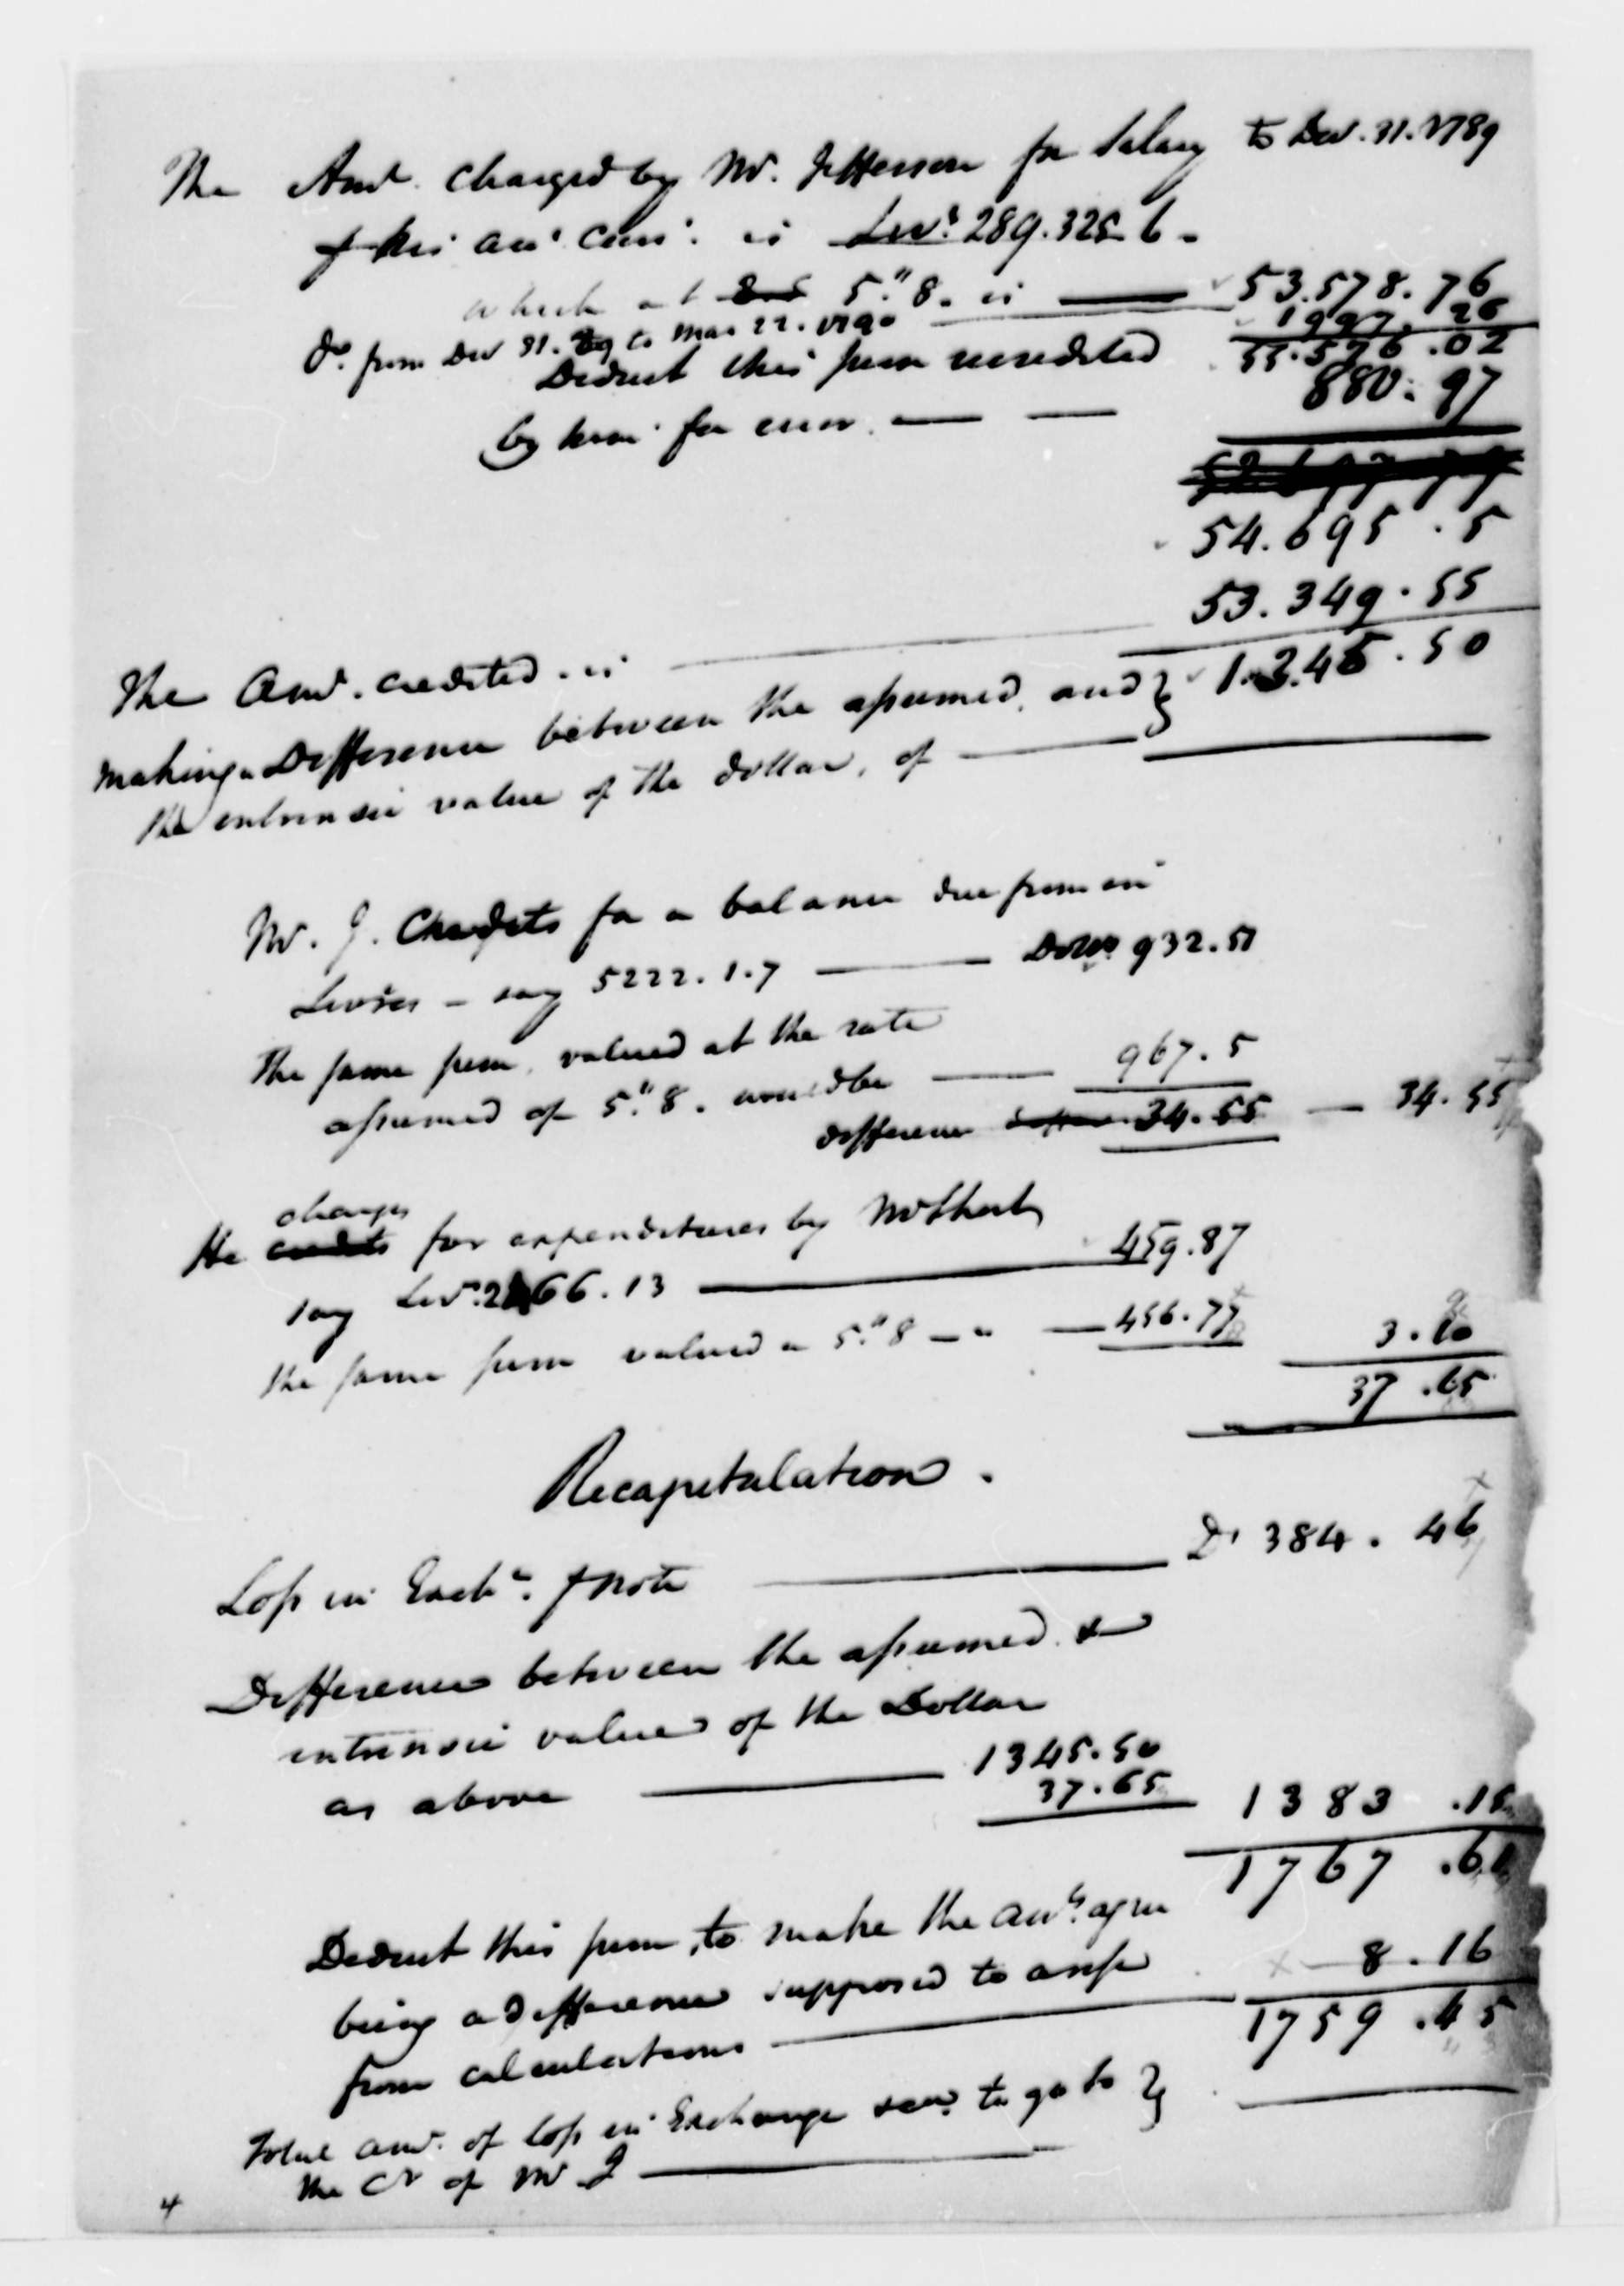 The Amt. charged by Mr. Jefferson for Salary to Decr. 31. 1789
pr his acct Curt. is Livrs. 289.325 6 -
which at 5." 8. is — 53.578.76
Do. from Decr 31. 89 to Mar 22. 1790 — 1997.26
55.576.02
Deduct this sum recredited
by him for error. — — 880.97
54.695.5
The Amt. credited is — 53.349.55
making a Difference between the assumed and } 1.345.50
the intrinsic value of the dollar, of —
Mr. J. Credits for a balance due from in
Livres - say 5222.1.7 — Dolls 932.51
The same sum, valued at the rate
assumed of 5." 8. would be — 967.5
difference 34.55 — 34.55
charges
He credits for expenditures by Mr Short
say Livrs. 2466.13 — 459.87
the same sum valued a 5." 8 — 456.77 3.10
37.65
Recapitulation.
Loss in Exch. pr note — Ds 384.46
Difference between the assumed &
intrinsic value of the Dollar
as above — 1345.50
37.65 1383.15
1767.61
Deduct this sum, to make the accts. agree
being a difference supposed to arise — 8.16
from calculations — 1759.45
Total amt. of loss in Exchange &ca. to go to }
the Cr of Mr J —
4